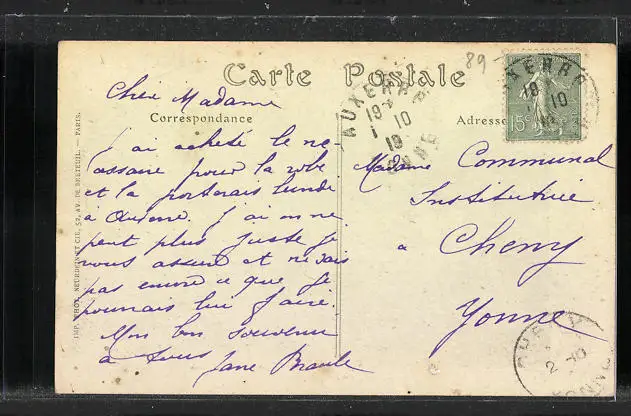 89
Carte Postale
Correspondance
Adresse
Chère Madame
J'ai acheté le né-
cessaire pour la robe
et la porterais lundi
a J'ai on ne
peut plus juste je
vous assure et ne sais
pas encore ce que je
pourrais lui faire.
Mon bon souvenir
à tous Jane
Madame Communal
Institutrice
a Cheny
Yonne
AUXERRE
19 *
1 10
19
YONNE
AUXERRE
19
10
15c
CHENY
2 -10
YONNE
IMP. PHOT. NEURDEIN ET CIE, 52, AV. DE BRETEUIL. — PARIS.